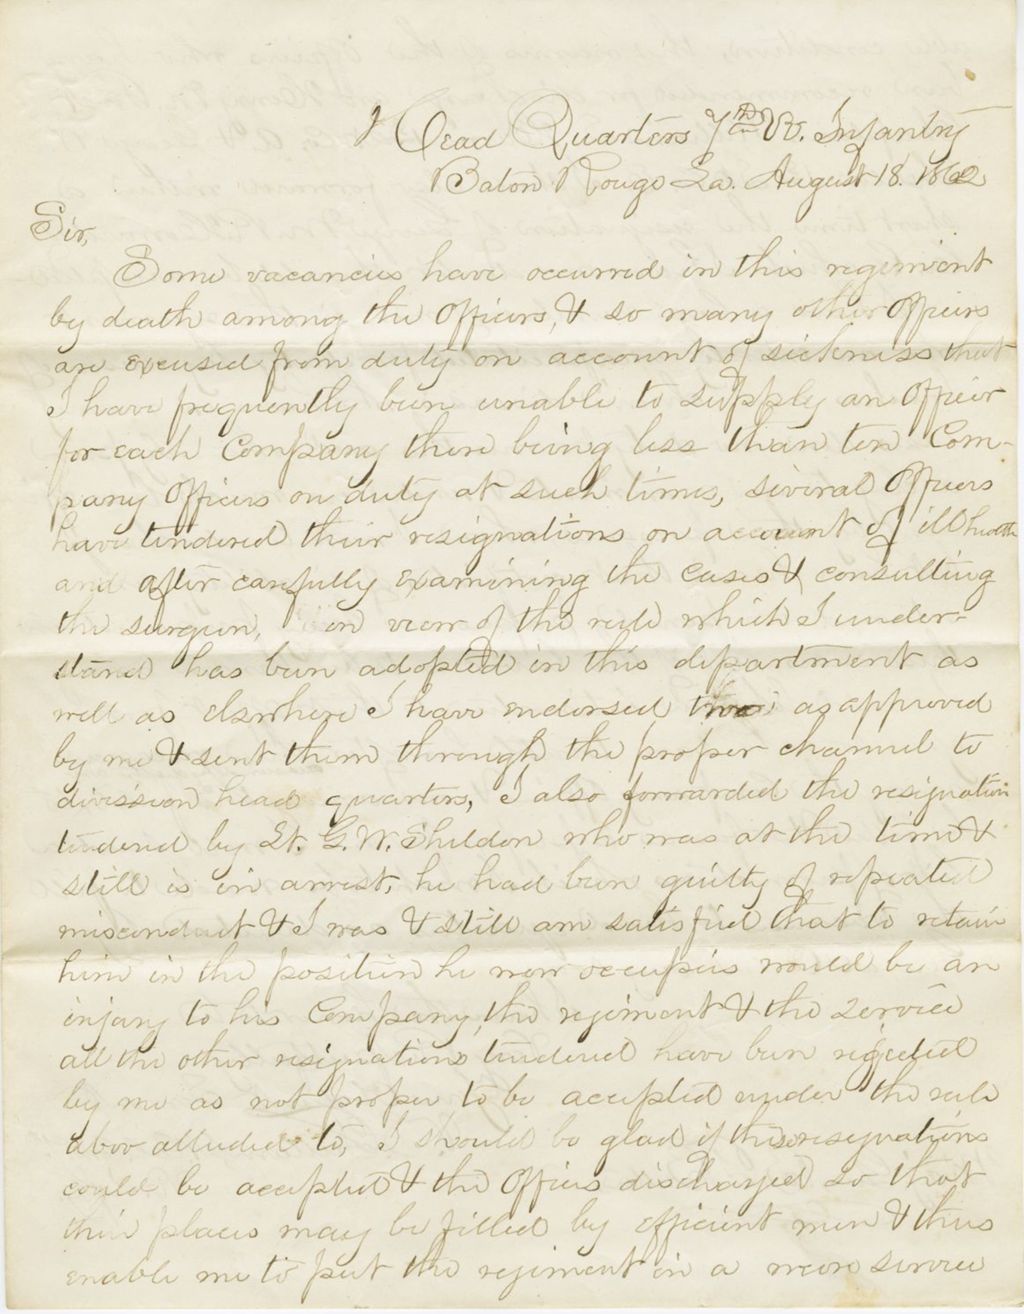 Head Quarters 7th Vt. Infantry
Baton Rouge La. August 18. 1862
Sir,
Some vacancies have occurred in this regiment
by death among the Officers, & so many other Officers
are excused from duty on account of sickness that
I have frequently been unable to supply an Officer
for each Company there being less than ten Com-
pany Officers on duty at such times, several Officers
have tendered their resignations on account of ill health
and after carefully examining the cases & consulting
the surgeon, in view of the rule which I under-
stand has been adopted in this department as
well as elswhere I have endorsed two as approved
by me & sent them through the proper channel to
division head quarters, I also forwarded the resignation
tendered by Lt. G. W. Sheldon who was at the time &
still is in arrest, he had been guilty of repeated
misconduct & I was & still am satisfied that to retain
him in the position he now occupies would be an
injury to his Company, the regiment & the service
all the other resignations tendered have been rejected
by me as not proper to be accepted under the rule
abov alluded to, I should be glad if these resignations
could be accepted & the Officers discharged so that
their places may be filled by efficient men & thus
enable me to put the regiment in a more servic